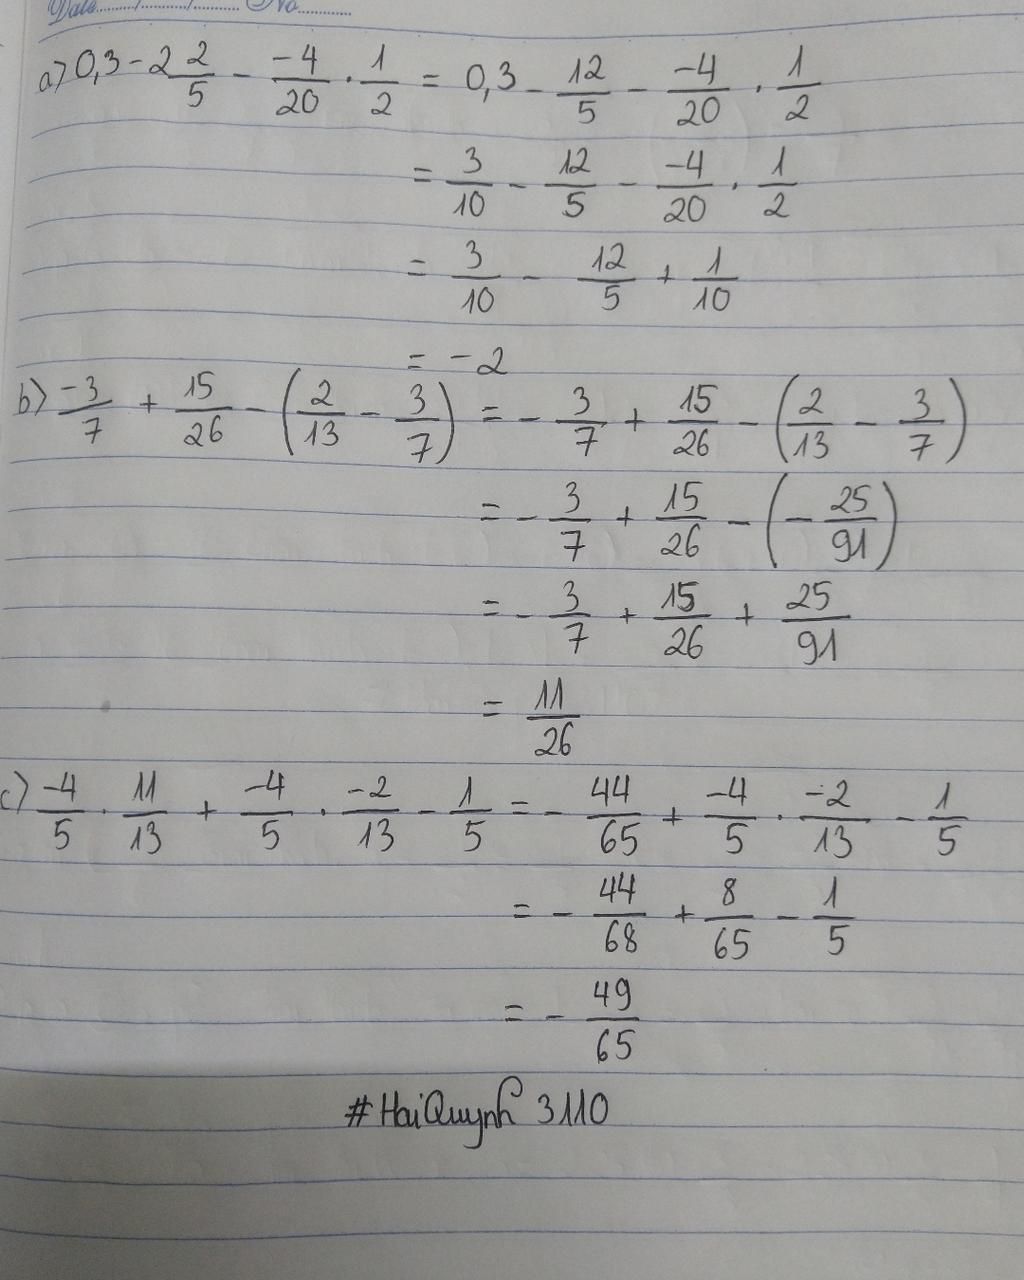 Date......../......../........ No............
a) 0,3 - 2 2/5 - -4/20 . 1/2 = 0,3 - 12/5 - -4/20 . 1/2
= 3/10 - 12/5 - -4/20 . 1/2
= 3/10 - 12/5 + 1/10
= -2
b) -3/7 + 15/26 - (2/13 - 3/7) = - 3/7 + 15/26 - (2/13 - 3/7)
= - 3/7 + 15/26 - (- 25/91)
= - 3/7 + 15/26 + 25/91
= 11/26
c) -4/5 . 11/13 + -4/5 . -2/13 - 1/5 = - 44/65 + -4/5 . -2/13 - 1/5
= - 44/68 + 8/65 - 1/5
= - 49/65
#HaiQuynh 3110